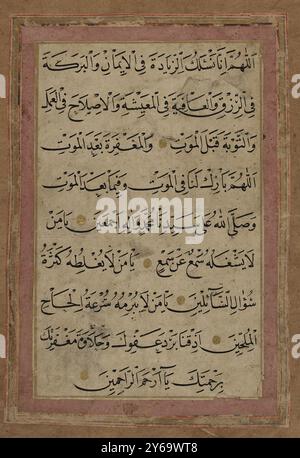 اللهم انا نسئلك الزيادة في الايمان والبركة
في الرزق والعافية في المعيشة والاصلاح في العمل
والتوبة قبل الموت والمغفرة بعد الموت
اللهم بارك لنا في الموت وفيما بعد الموت
وصلى الله على سيدنا محمد وآله اجمعين يا من
لا يشغله سمع عن سمع يا من لا يغلطه كثرة
سؤال السائلين يا من لا يبرمه سرعة الحاح
الملحين اذقنا برد عفوك وحلاوة مغفرتك
برحمتك يا ارحم الراحمين
alamy
Image ID: 2Y69WT8
www.alamy.com